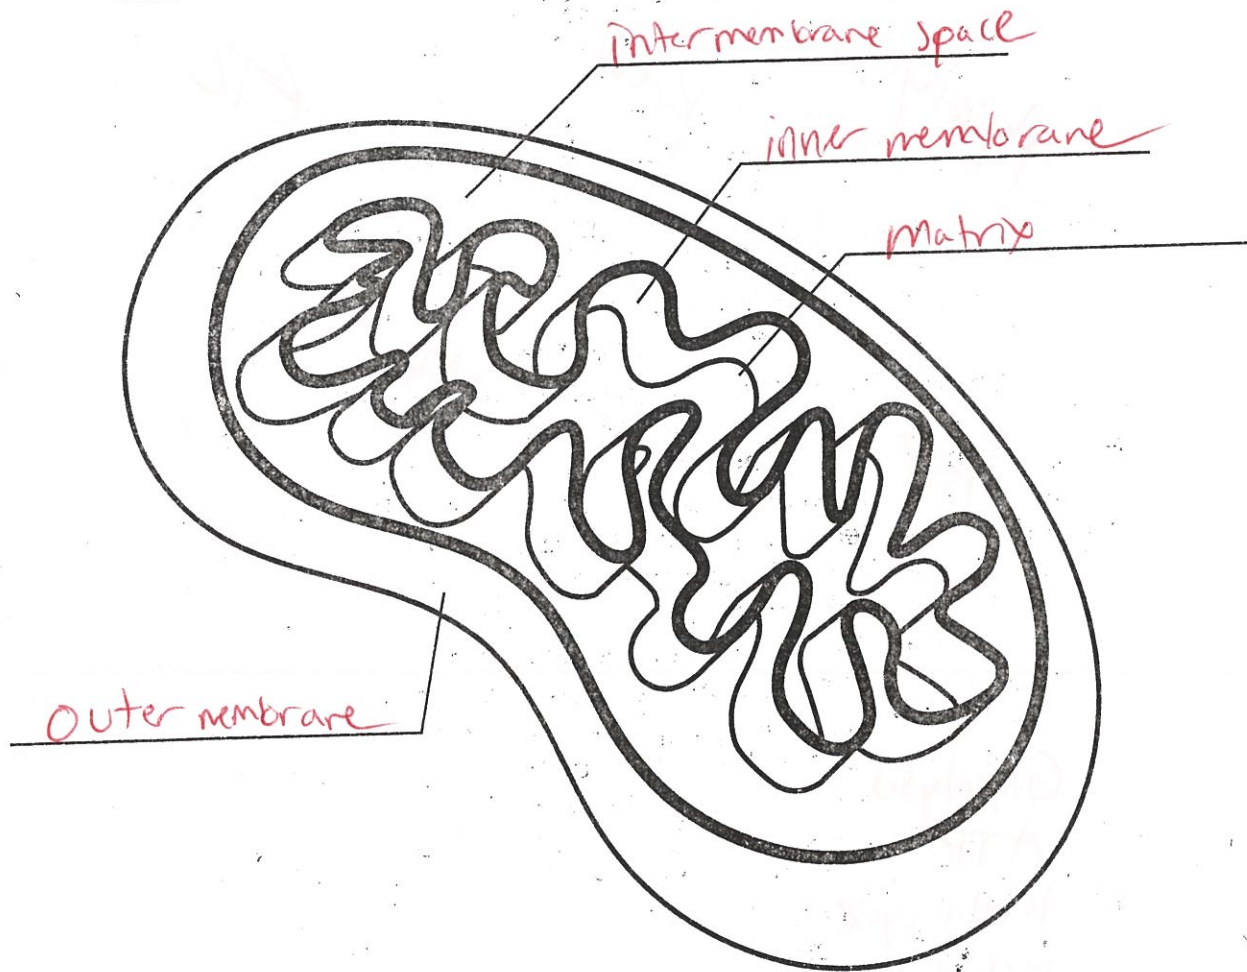 intermembrane space
inner membrane
Matrix
Outer membrane